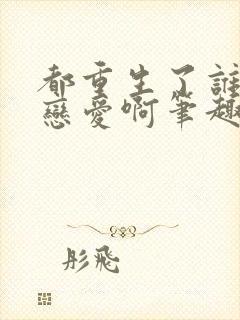 都重生了誰
戀愛啊筆趣
彤飛